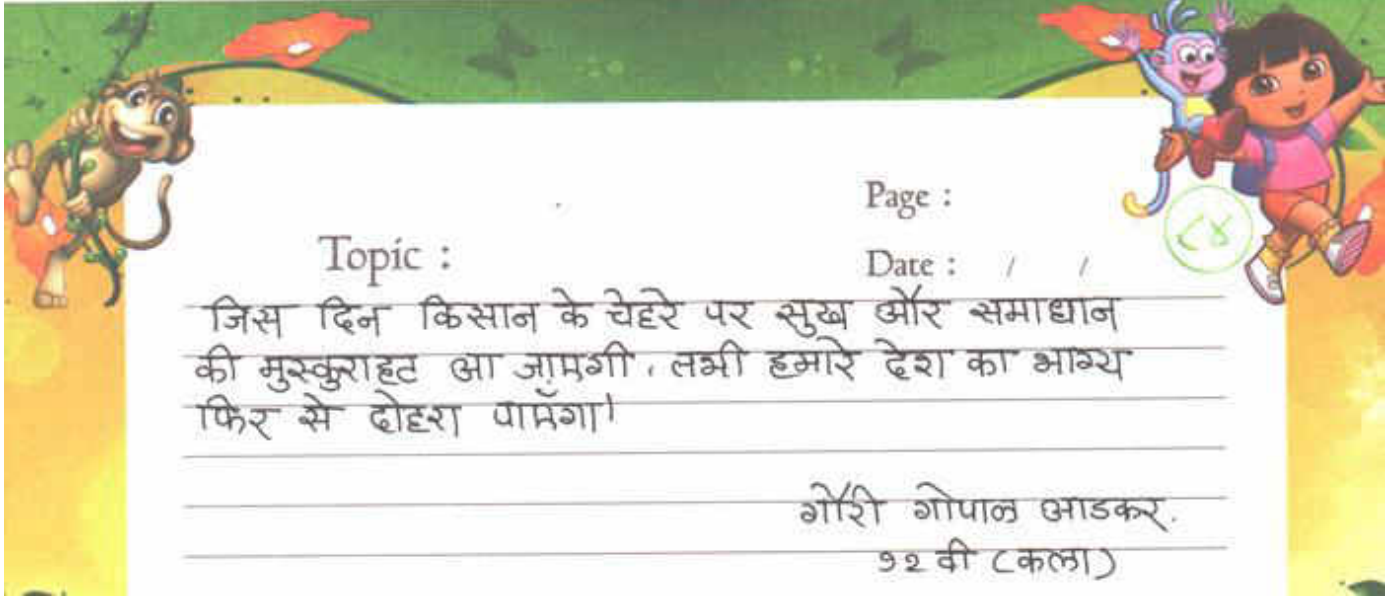 Page :
Topic :
Date : / /
जिस दिन किसान के चेहरे पर सुख और समाधान
की मुस्कुराहट आ जाएगी, तभी हमारे देश का भाग्य
फिर से दोहरा पाएँगा!
गौरी गोपाल आडकर.
१२ वी (कला)